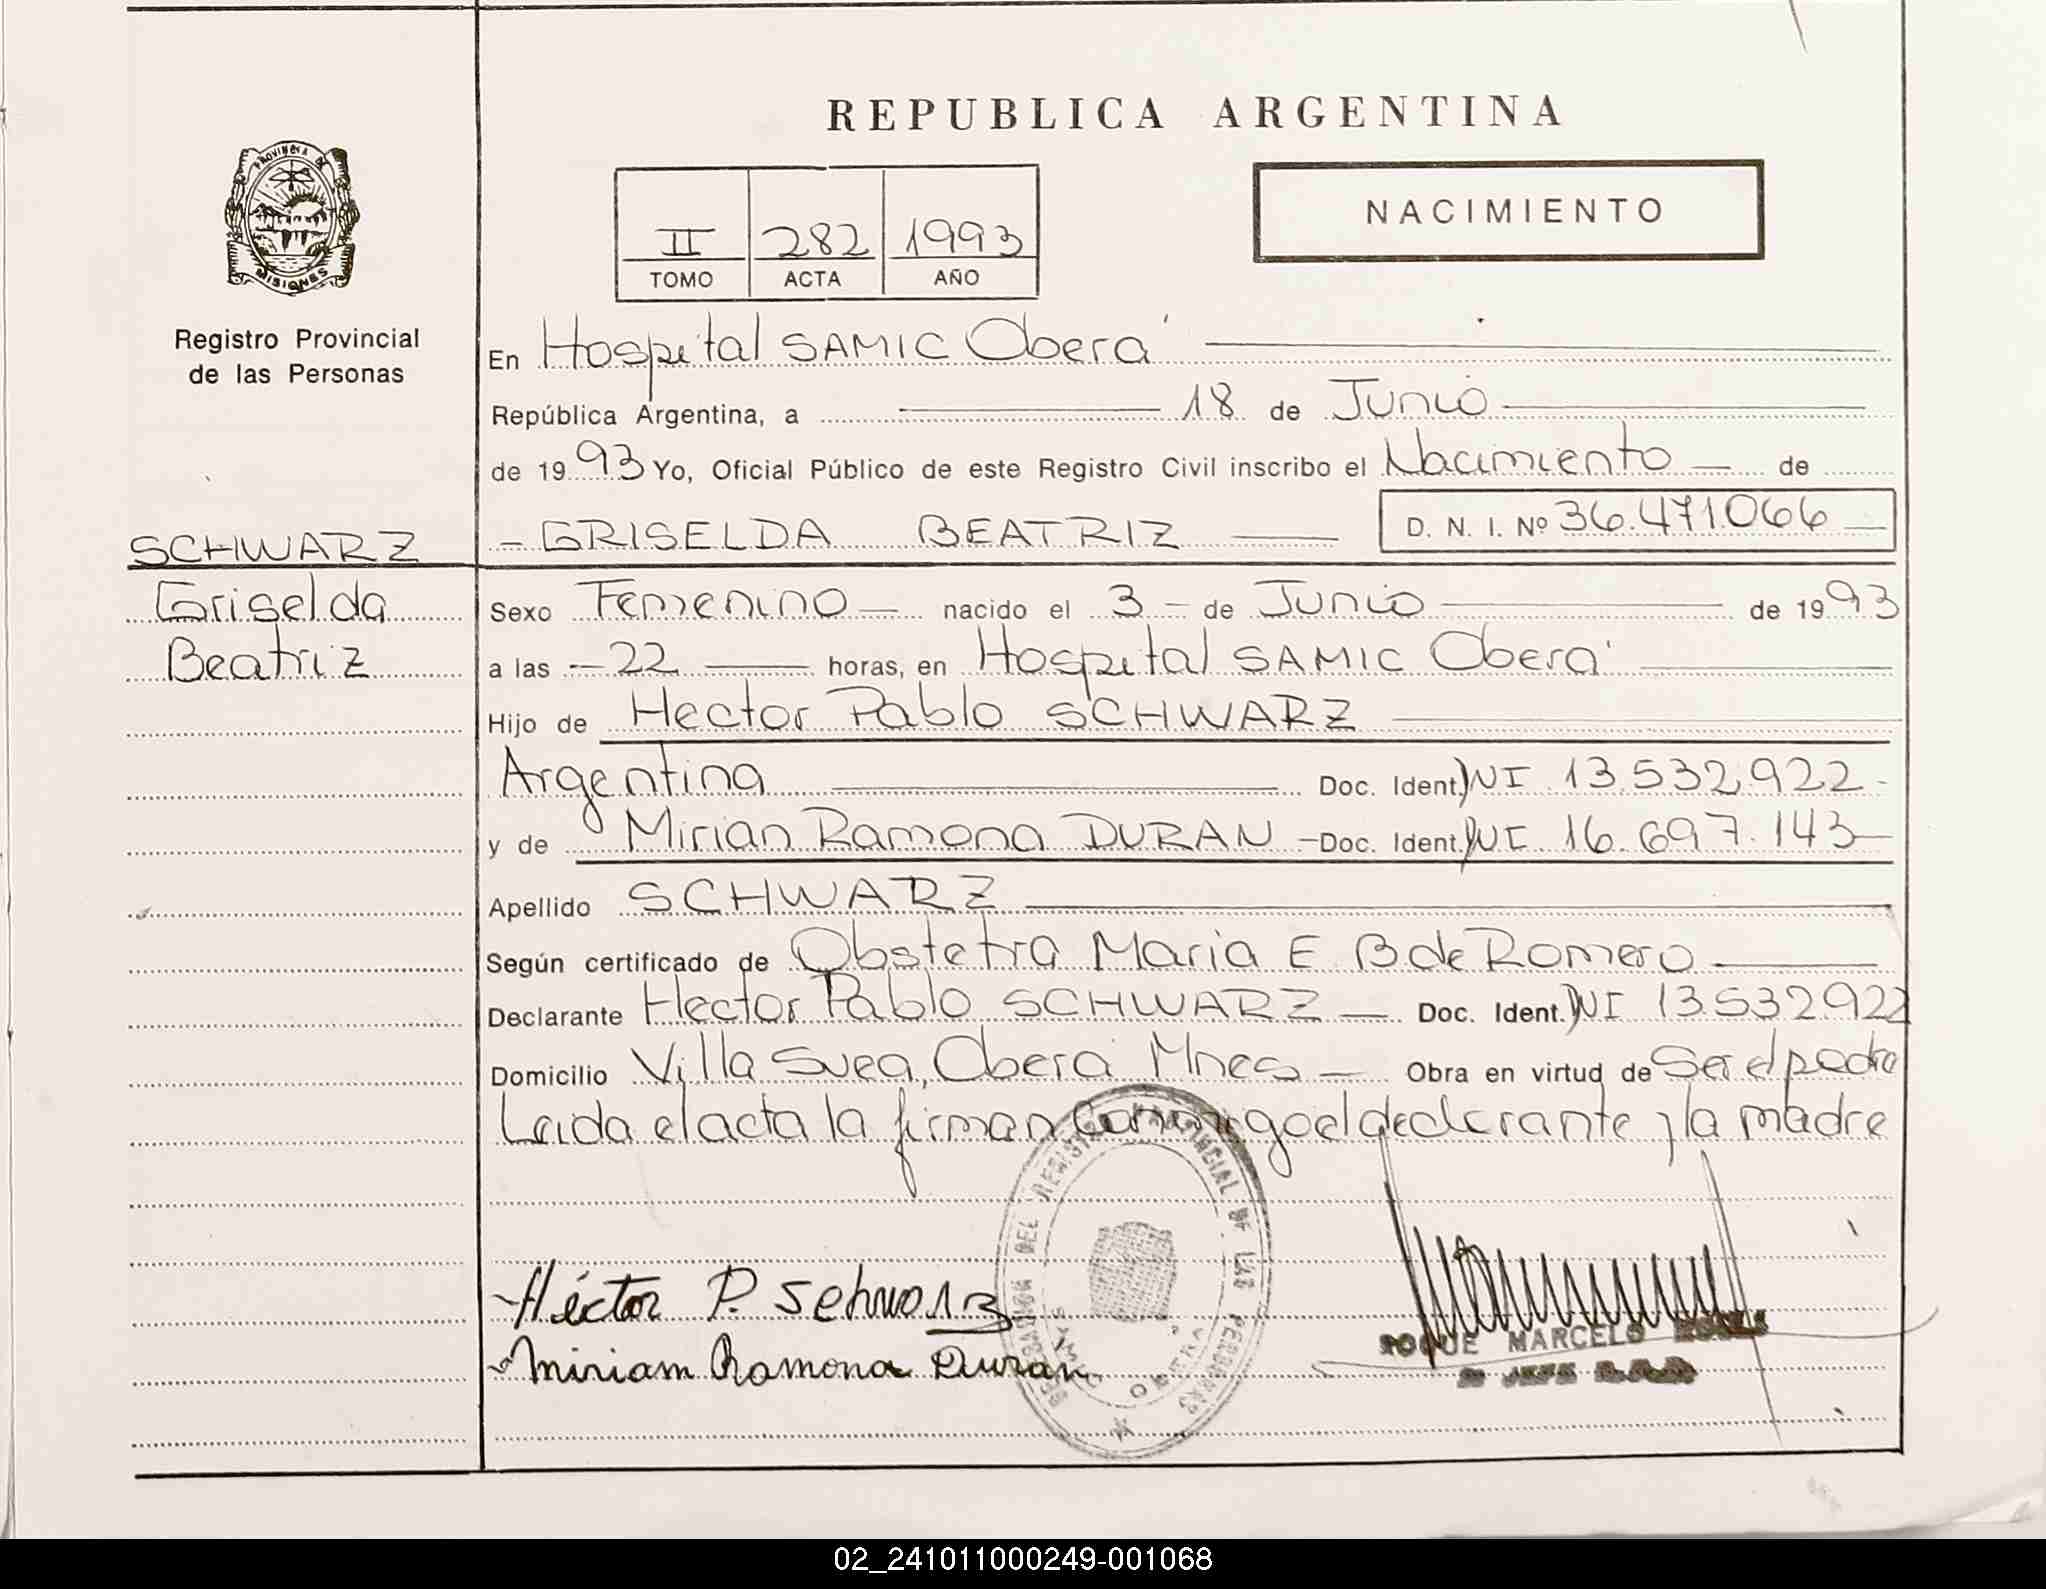 REPUBLICA ARGENTINA
PROVINCIA DE
MISIONES
Registro Provincial
de las Personas
II 282 1993
TOMO ACTA AÑO
NACIMIENTO
En Hospital SAMIC Oberá
República Argentina, a 18 de Junio
de 1993 Yo, Oficial Público de este Registro Civil inscribo el Nacimiento de
SCHWARZ
Griselda
Beatriz
GRISELDA BEATRIZ D. N. I. Nº 36.471.066
Sexo Femenino nacido el 3 de Junio de 1993
a las 22 horas, en Hospital SAMIC Oberá
Hijo de Hector Pablo SCHWARZ
Argentina Doc. Ident. DNI 13.532.922
y de Mirian Ramona DURAN Doc. Ident. DNI 16.697.143
Apellido SCHWARZ
Según certificado de Obstetra Maria E B de Romero
Declarante Hector Pablo SCHWARZ Doc. Ident. DNI 13532922
Domicilio Villa Svea, Oberá Mnes Obra en virtud de Ser el padre
Leida el acta la firman conmigo el declarante y la madre
Héctor P. Schwarz
Miriam Ramona Duran
DEL REGISTRO PROVINCIAL DE LAS PERSONAS
OBERA
ROQUE MARCELO
JEFE
02_241011000249-001068